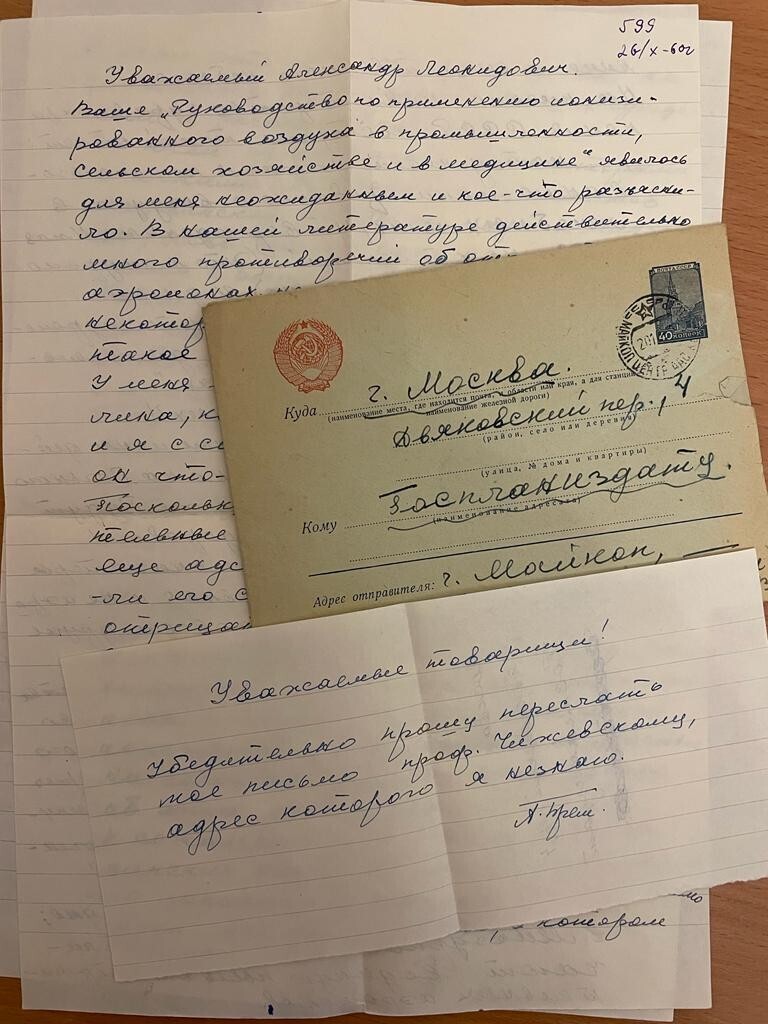 599
26/X-60г
Уважаемый Александр Леонидович.
Ваше „Руководство по применению ионизи-
рованного воздуха в промышленности,
сельском хозяйстве и в медицине" явилось
для меня неожиданным и кое-что разъясни-
ло. В нашей литературе действительно
много противоречий об
аэроионах,
некотор
такое
У меня
чина, к
и я с
он что-
Поскольк
тельные
еще адс
-ли его с
отрицат
ПОЧТА СССР
40 КОПЕЕК
МАЙКОП ЦЕНТР
Куда г. Москва.
(наименование места, где находится почта, и области или края, а для станции
наименование железной дороги)
Дьяковский пер., 4
(район, село или деревня)
(улица, № дома и квартиры)
Госпланиздату.
Кому
(наименование адресата)
Адрес отправителя: г. Майкоп,
Уважаемые товарищи!
Убедительно прошу переслать
мое письмо проф. Чижевскому,
адрес которого я незнаю.
А. Брем.
котором